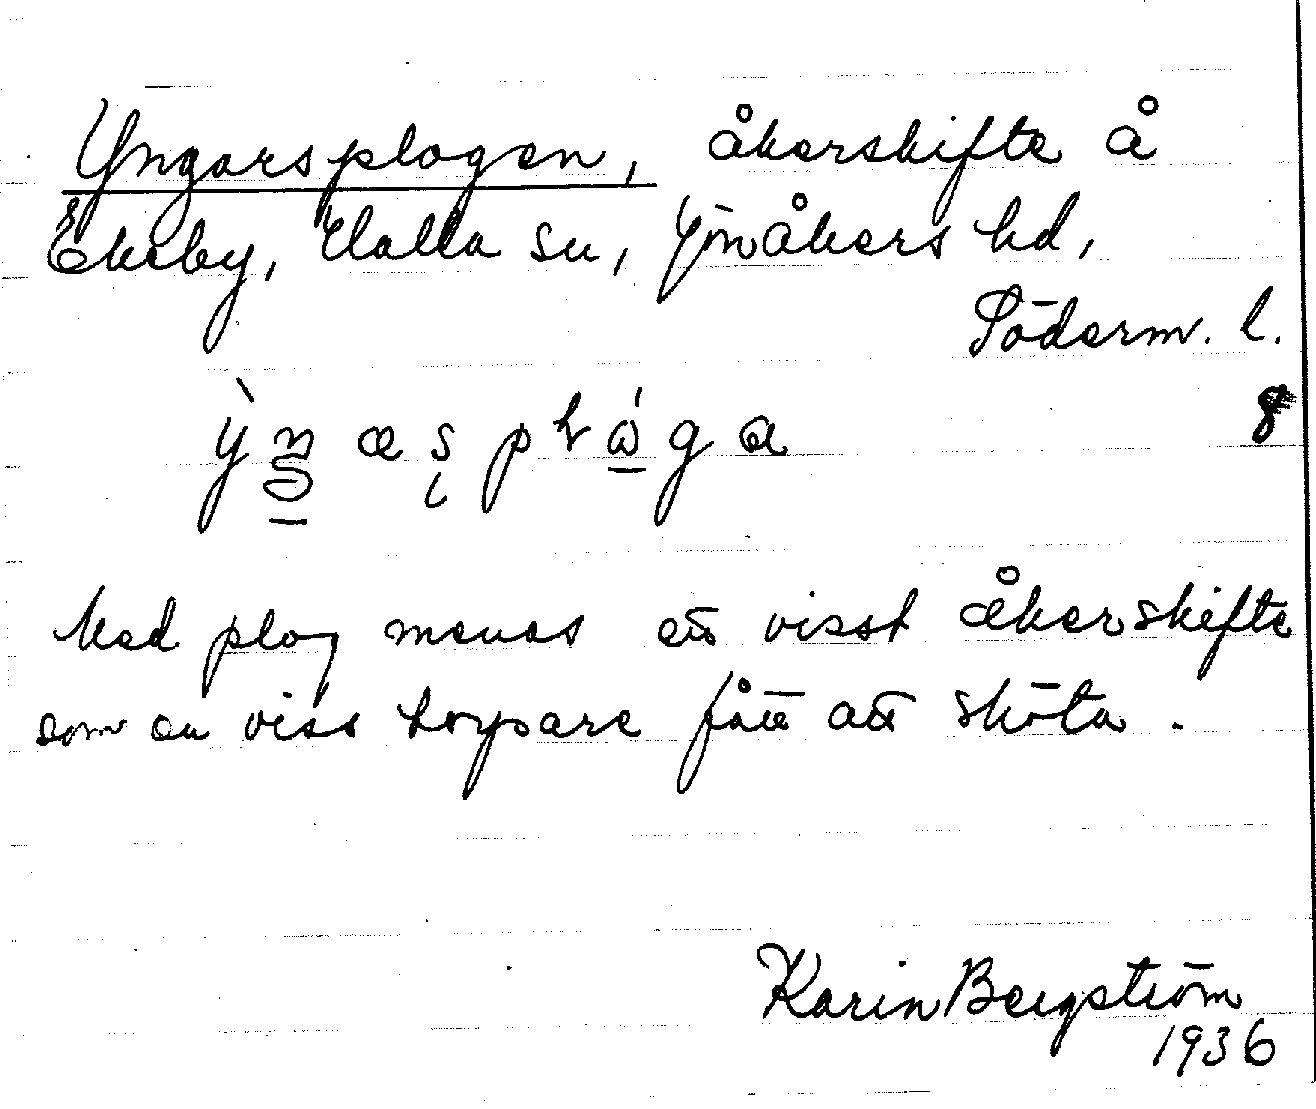 Yngarsplogen, åkerskifte å
Ekeby, Halla sn, Jönåkers hd,
Söderm. l.
8
Med plog menas ett visst åkerskifte
som en viss torpare fått att sköta.
Karin Bergström
1936